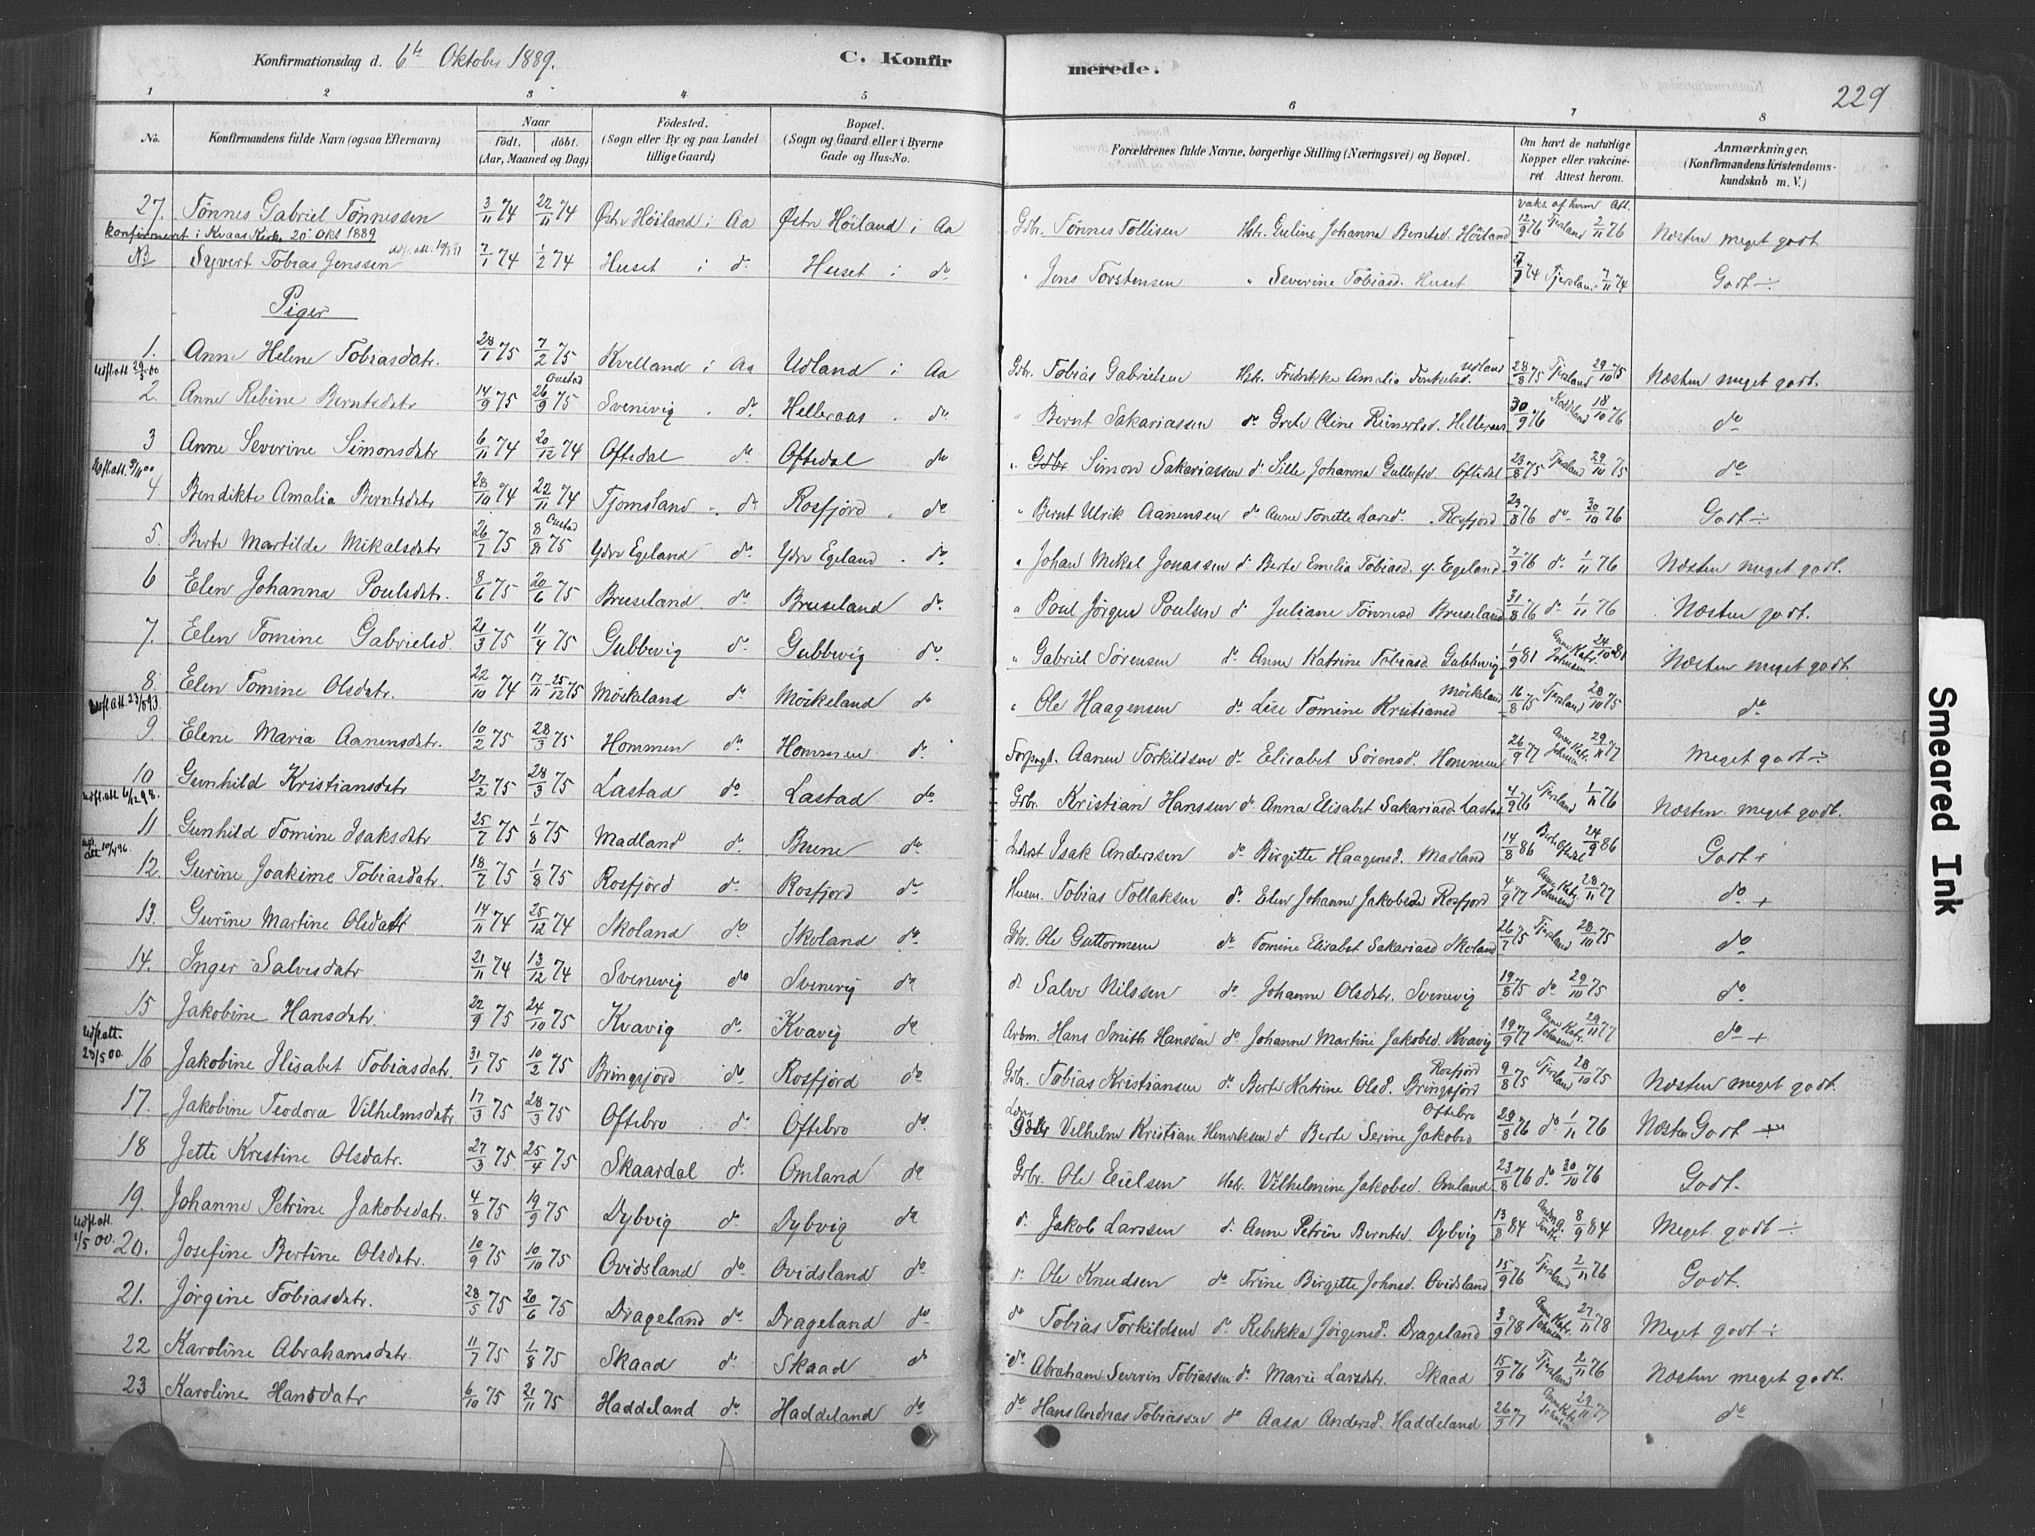 Konfirmationsdag d. 6te Oktober 1889. C. Konfirmerede. 229
1 2 3 4 5 6 7 8
No. Konfirmandens fulde Navn (ogsaa Efternavn) Naar født. døbt. (Aar, Maaned og Dag) Fødested. (Sogn eller By og paa Landet tillige Gaard) Bopæl. (Sogn og Gaard eller i Byerne Gade og Hus-No. Forældrenes fulde Navne, borgerlige Stilling (Næringsvei) og Bopæl. Om havt de naturlige Kopper eller vakcineret. Attest herom. Anmærkninger. (Konfirmandens Kristendomskundskab m. V.)
vaks. af hvem Att.
27. Tønnes Gabriel Tønnessen 3/11 74 22/11 74 Østr Höiland i Aa Østr Höiland i Aa Gdbr. Tønnes Tollisen Hstr. Guline Johanna Berntsd. Höiland 12/9 76 Tjersland 2/11 76 Næsten meget godt
konfirmeret i Kvaas Kirke 20de Okt 1889
NB Syvert Tobias Jenssen 7/1 74 1/2 74 Huset i do Huset i do " Jens Torstensen " Severine Tobiasd. Huset 7/11 74 Godt ÷
Piger
1. Anne Helene Tobiasdatr. 28/1 75 7/2 75 Kvelland i Aa Udland i Aa Gdbr. Tobias Gabrielsen Hstr. Fredrikke Amalia Udland 28/8 75 Tjersland 29/10 75 Næsten meget godt.
Udfl. att 29/3 00
2. Anne Rebine Berntsdatr 14/9 75 26/9 75 Svenevig " do Helleraas " do " Bernt Sakariassen do Grete Eline Reinertsd. Helleraas 30/9 76 18/10 76 do
3 Anne Severine Simonsdatr 6/11 74 20/12 74 Oftedal do Oftedal do " Gdbr Simon Sakariassen do Sille Johanna Oftedal 28/8 75 Tjersland 29/10 75 do
4 Bendikte Amalia Berntsdatr 28/10 74 22/11 74 Tjomsland " do Rosfjord " do " Bernt Ulrik Aanensen do Anne Tonette Larsd. Rosfjord 23/8 76 do 30/10 76 Godt ÷
5. Berte Martilde Mikalsdatr 26/7 75 8/8 75 Ydre Egeland do Ydre Egeland " do " Johan Mikal Jonassen do Berte Emelia Tobiasd. y. Egeland 7/9 76 do 1/11 76 Næsten meget godt.
6 Elen Johanna Poulsdatr. 8/6 75 20/6 75 Bruseland. do Bruseland do. " Poul Jörgen Poulsen do Juliane Tønnesd Bruseland 31/8 76 do 1/11 76 Næsten godt.
7. Elen Tomine Gabrielsd. 21/3 75 11/4 75 Gubbevig do Gubbevig do " Gabriel Sørensen do Anne Katrine Tobiasd Gubbevig 1/9 81 Anne Katr. Johnsen 24/10 81 Næsten meget godt
8. Elen Tomine Olsdatr. 22/10 74 17/11 - 25/12 75 Möskeland do Möskeland do " Ole Haagensen do Lise Tomine Kristiansd Möskeland 16/8 75 Tjersland 28/10 75 do
Udfl. att. 23/5 93.
9. Elene Maria Aanensdatr. 10/2 75 28/3 75 Hommen do Hommen do Forpagt. Aanen Torkildsen do Elisabet Sørensd. Hommen 26/9 77 Anne Katr. Johnsen 29/11 77 Meget godt ÷
10 Gunhild Kristiansdatr 27/2 75 28/3 75 Lastad do Lastad do Gdbr. Kristian Hanssen do Anna Elisabet Sakariasd Lastad 4/9 76 Tjersland 1/11 76 Næsten meget godt.
Udfl. att 6/12 98.
11 Gunhild Tomine Isaksdatr 25/7 75 1/8 75 Madland do Buene do Isak Anderssen do Birgitte Haagensd. Madland 14/8 86 24/9 86 Godt +
att 10/4 96.
12. Gurine Joakime Tobiasdatr. 18/7 75 1/8 75 Rosfjörd do Rosfjord do Husm. Tobias Tollaksen do Elen Johanne Jakobsd Rosfjord 4/9 77 Anne Katr. Johnsen 28/11 77 do +
13. Gurine Martine Olsdatr 14/11 74 25/12 74 Skoland do Skoland do Gdbr. Ole Guttormsen do Tomine Elisabet Sakariasd Skoland 26/7 75 Tjersland 28/10 75 do
14. Inger Salvesdatr 21/11 74 13/12 74 Svenevig do Svenevig do do Salve Nilssen do Johanne Olsdatr. Svenevig 19/8 75 do 29/10 75 do
15 Jakobine Hansdatr 22/9 75 24/10 75 Kvavig do Kvavig do Arbm. Hans Smith Hanssen do Johanne Martine Jakobsd. Kvavig 19/9 77 Anne Katr. Johnsen 29/11 77 do +
Udfl. att. 23/5 00.
16 Jakobine Elisabet Tobiasdatr. 31/1 75 10/2 75 Bringsjord do Rosfjord do Gdbr. Tobias Kristiansen do Berte Katrine Olsd. Bringsfjord Rosfjord 9/8 75 Tjersland 28/10 75 Næsten meget godt.
17. Jakobine Teodora Vilhelmsdatr 17/3 75 28/3 75 Oftebro do Oftebro do Vilhelm Kristian Henriksen do Berte Serine Jakobsd Oftebro 29/8 76 do 1/11 76 Næsten Godt
18 Jette Kristine Olsdatr. 27/3 75 25/4 75 Skaardal do Omland do Gdbr. Ole Eielsen Hstr. Vilhelmine Jakobsd. Omland 23/8 76 do 30/10 76 Godt.
19. Johanne Petrine Jakobsdatr. 4/8 75 19/9 75 Dybvig do Dybvig do do Jakob Larssen do Anne Petrine Berntsd. Dybvig 13/8 84 8/9 84 Meget godt ÷
Udfl. att. 1/5 00.
20. Josefine Bertine Olsdatr. 10/9 75 10/10 75 Ovidsland do Ovidsland do do Ole Knudsen do Trine Birgitte Johnsd. Ovidsland 15/9 76 Tjersland 2/11 76 Godt.
21. Jørgine Tobiasdatr. 28/5 75 20/6 75 Drageland do Drageland do do Tobias Torkildsen do Rebekka Jørgensd. Drageland 3/9 78 Anne Katr. Johnsen 27/11 78 Meget godt ÷
22 Karoline Abrahamsdatr. 11/7 75 1/8 75 Skaad do Skaad do do Abraham Severin Tobiassen do Marie Larsdtr. Skaad 15/9 76 Tjersland 2/11 76 Næsten meget godt.
23 Karoline Hansdatr 6/10 75 21/11 75 Haddeland do Haddeland do do Hans Andreas Tobiassen do Aasa Andersd. Haddeland 26/9 77 Anne Katr. Johnsen 29/11 77 do
Smeared Ink